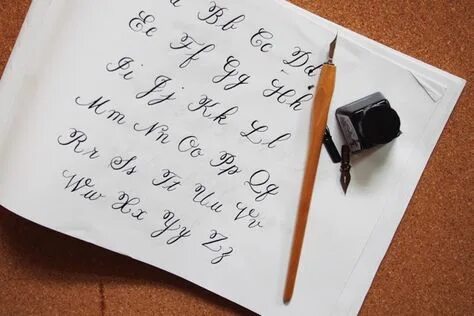 a Bb Cc Dd
Ee Ff Gg Hh
Ii Jj Kk Ll
Mm Nn Oo Pp Qq
Rr Ss Tt Uu Vv
Ww Xx Yy Zz